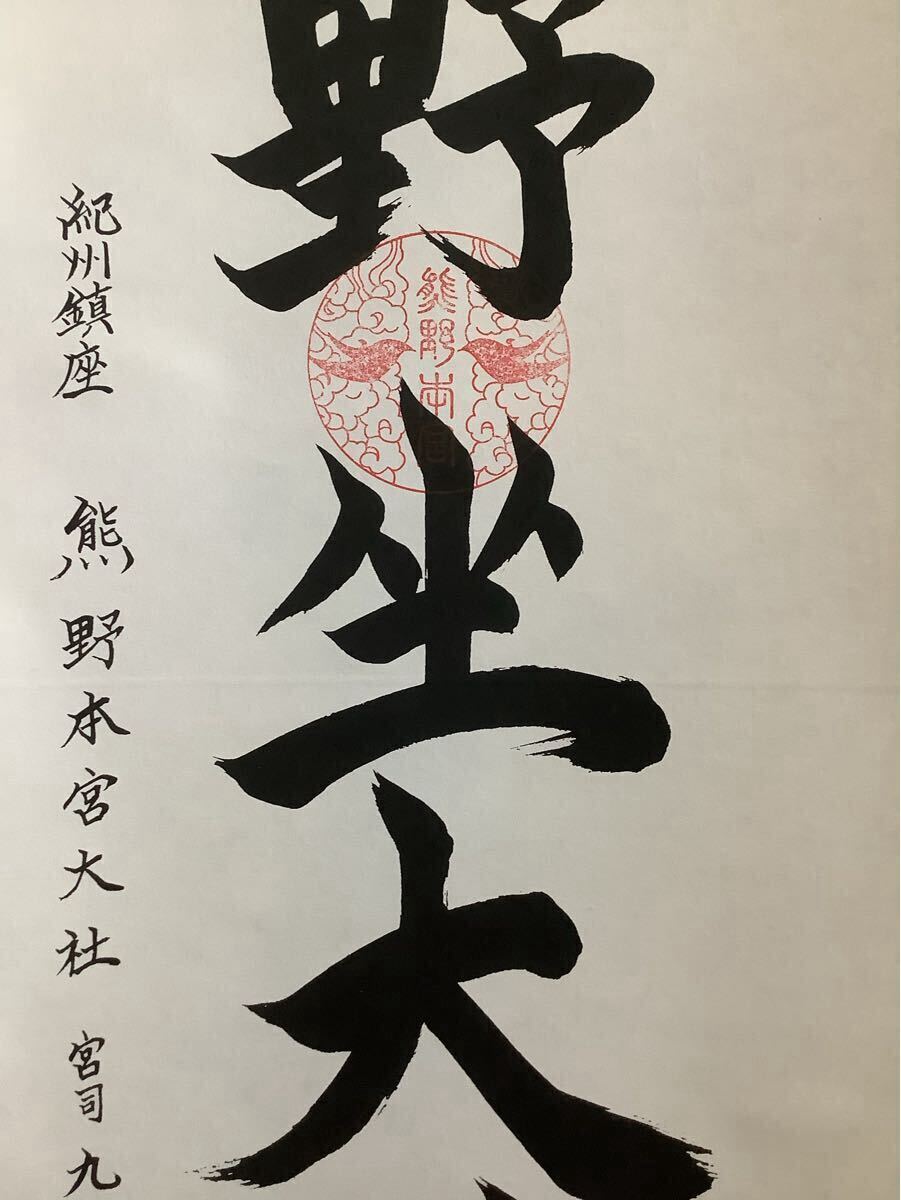 野坐大
熊野本宮
紀州鎮座 熊野本宮大社 宮司 九